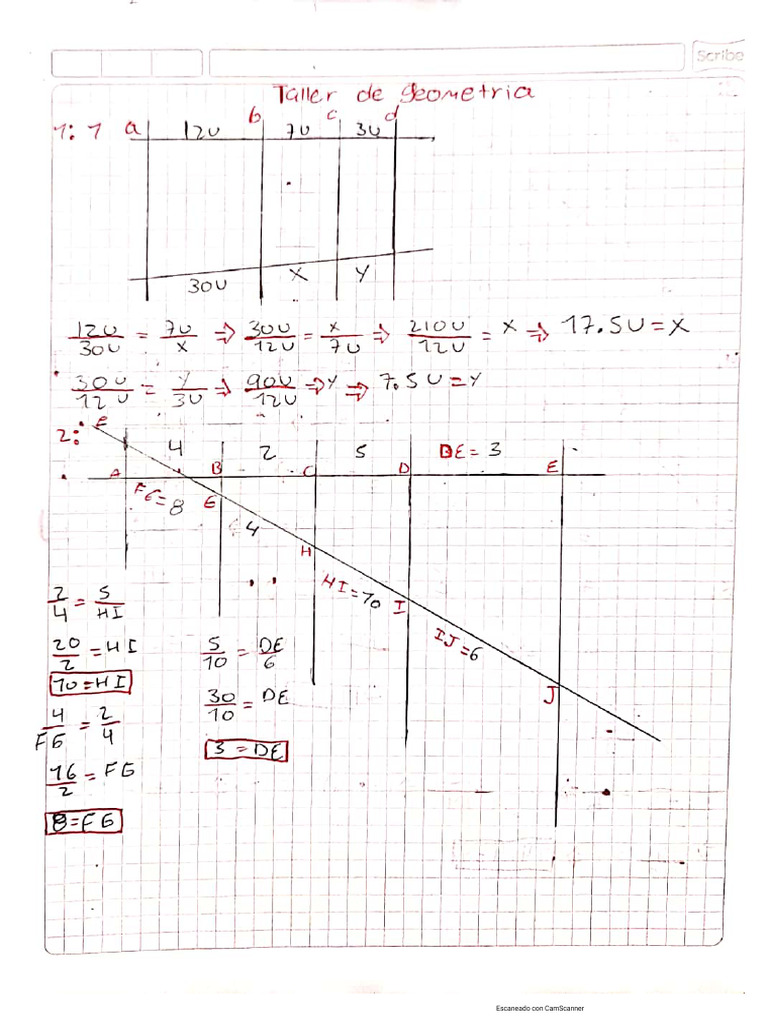 Scribe
Taller de geometria
1: 1 a 12u b 7u c 3u d
30u X Y
12u/30u = 7u/X ⇒ 30u/12u = X/7u ⇒ 210u/12u = X ⇒ 17.5u = X
30u/12u = Y/3u ⇒ 90u/12u ⇒ Y ⇒ 7.5u = Y
2: F
4 2 5 DE = 3
A B C D E
FG = 8 G 4
H
HI = 10 I
IJ = 6
J
2/4 = 5/HI
20/2 = HI
10 = HI
4/FG = 2/4
16/2 = FG
8 = FG
5/10 = DE/6
30/10 = DE
3 = DE
Escaneado con CamScanner